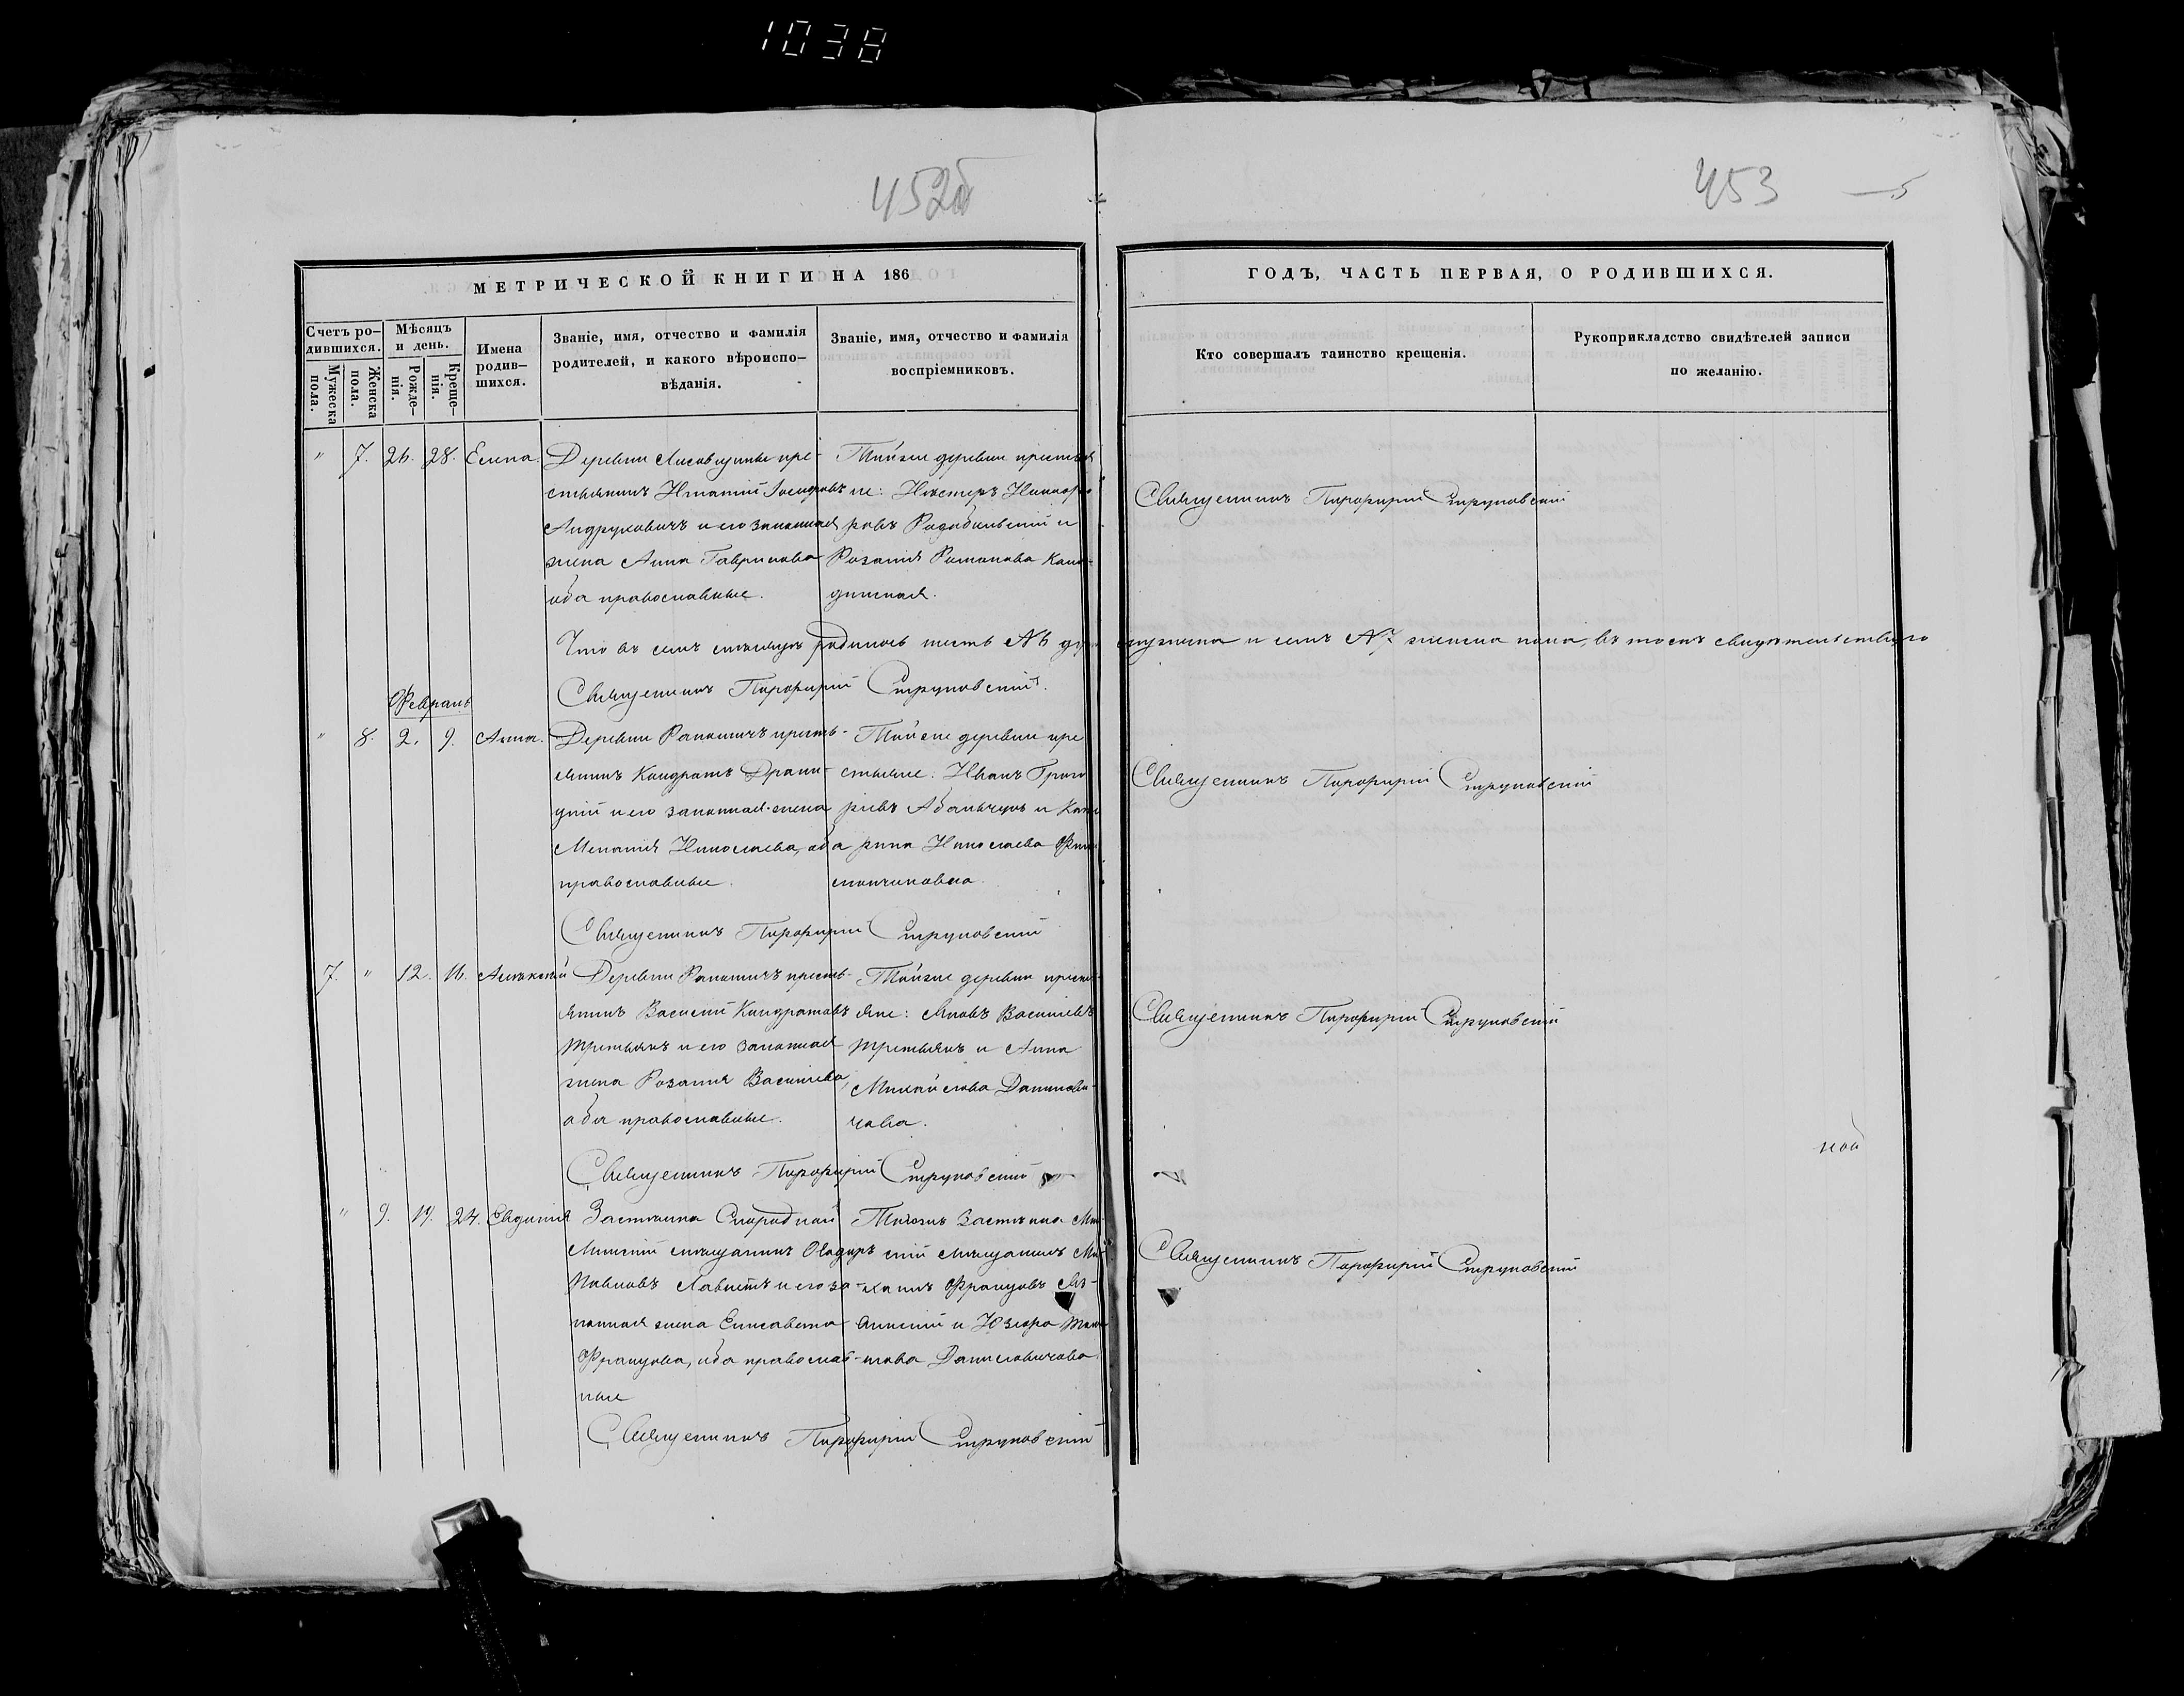 1038
452б
453
5
МЕТРИЧЕСКОЙ КНИГИ НА 186
ГОДЪ, ЧАСТЬ ПЕРВАЯ, О РОДИВШИХСЯ.
Счетъ родившихся.
Мужеска пола.
Женска пола.
Мѣсяцъ и день.
Рожденія.
Крещенія.
Имена родившихся.
Званіе, имя, отчество и фамилія
родителей, и какого вѣроиспо-
вѣданія.
Званіе, имя, отчество и фамилія
воспріемниковъ.
Кто совершалъ таинство крещенія.
Рукоприкладство свидѣтелей записи
по желанію.
" 7. 26. 28. Елена.
Деревни Лисовщины кре-
стьянинъ Игнатій Іосифовъ
Андруковичъ и его законная
жена Анна Гаврилова
оба православные.
Тойже деревни крестья
не: Нестеръ Никифо
ровъ и
Розалія Романова
Священникъ Порфирій Струковскій
Что въ семъ мѣсяцѣ родилось шесть №6 мужеска и семь №7 женска пола, въ томъ свидѣтельствую
Священникъ Порфирій Струковскій.
Февраль
" 8. 2. 9. Анна.
Деревни кресть-
янинъ Кондратъ
и его законная жена
Меланія Николаева, оба
православные.
Тойже деревни кре
стьяне: Иванъ Григо
ріевъ и Кате
рина Николаева
Священникъ Порфирій Струковскій
Священникъ Порфирій Струковскій
7. " 12. 16. Алексѣй
Деревни кресть-
янинъ Василій Кондратовъ
Третьякъ и его законная
жена Розалія Васильева,
оба православные.
Тойже деревни кресть-
яне: Яковъ Васильевъ
Третьякъ и Анна
Михайлова Данилови-
чова.
Священникъ Порфирій Струковскій
Священникъ Порфирій Струковскій
ной
" 9. 19. 24. Евдокія
Застѣнка
Минскій мѣщанинъ
Павловъ и его за-
конная жена Елисавета
Францова, оба православ-
ные
Тогожъ застѣнка Мин
скій мѣщанинъ Ми-
хаилъ Францовъ
и Юзефа
Даниловичова.
Священникъ Порфирій Струковскій
Священникъ Порфирій Струковскій